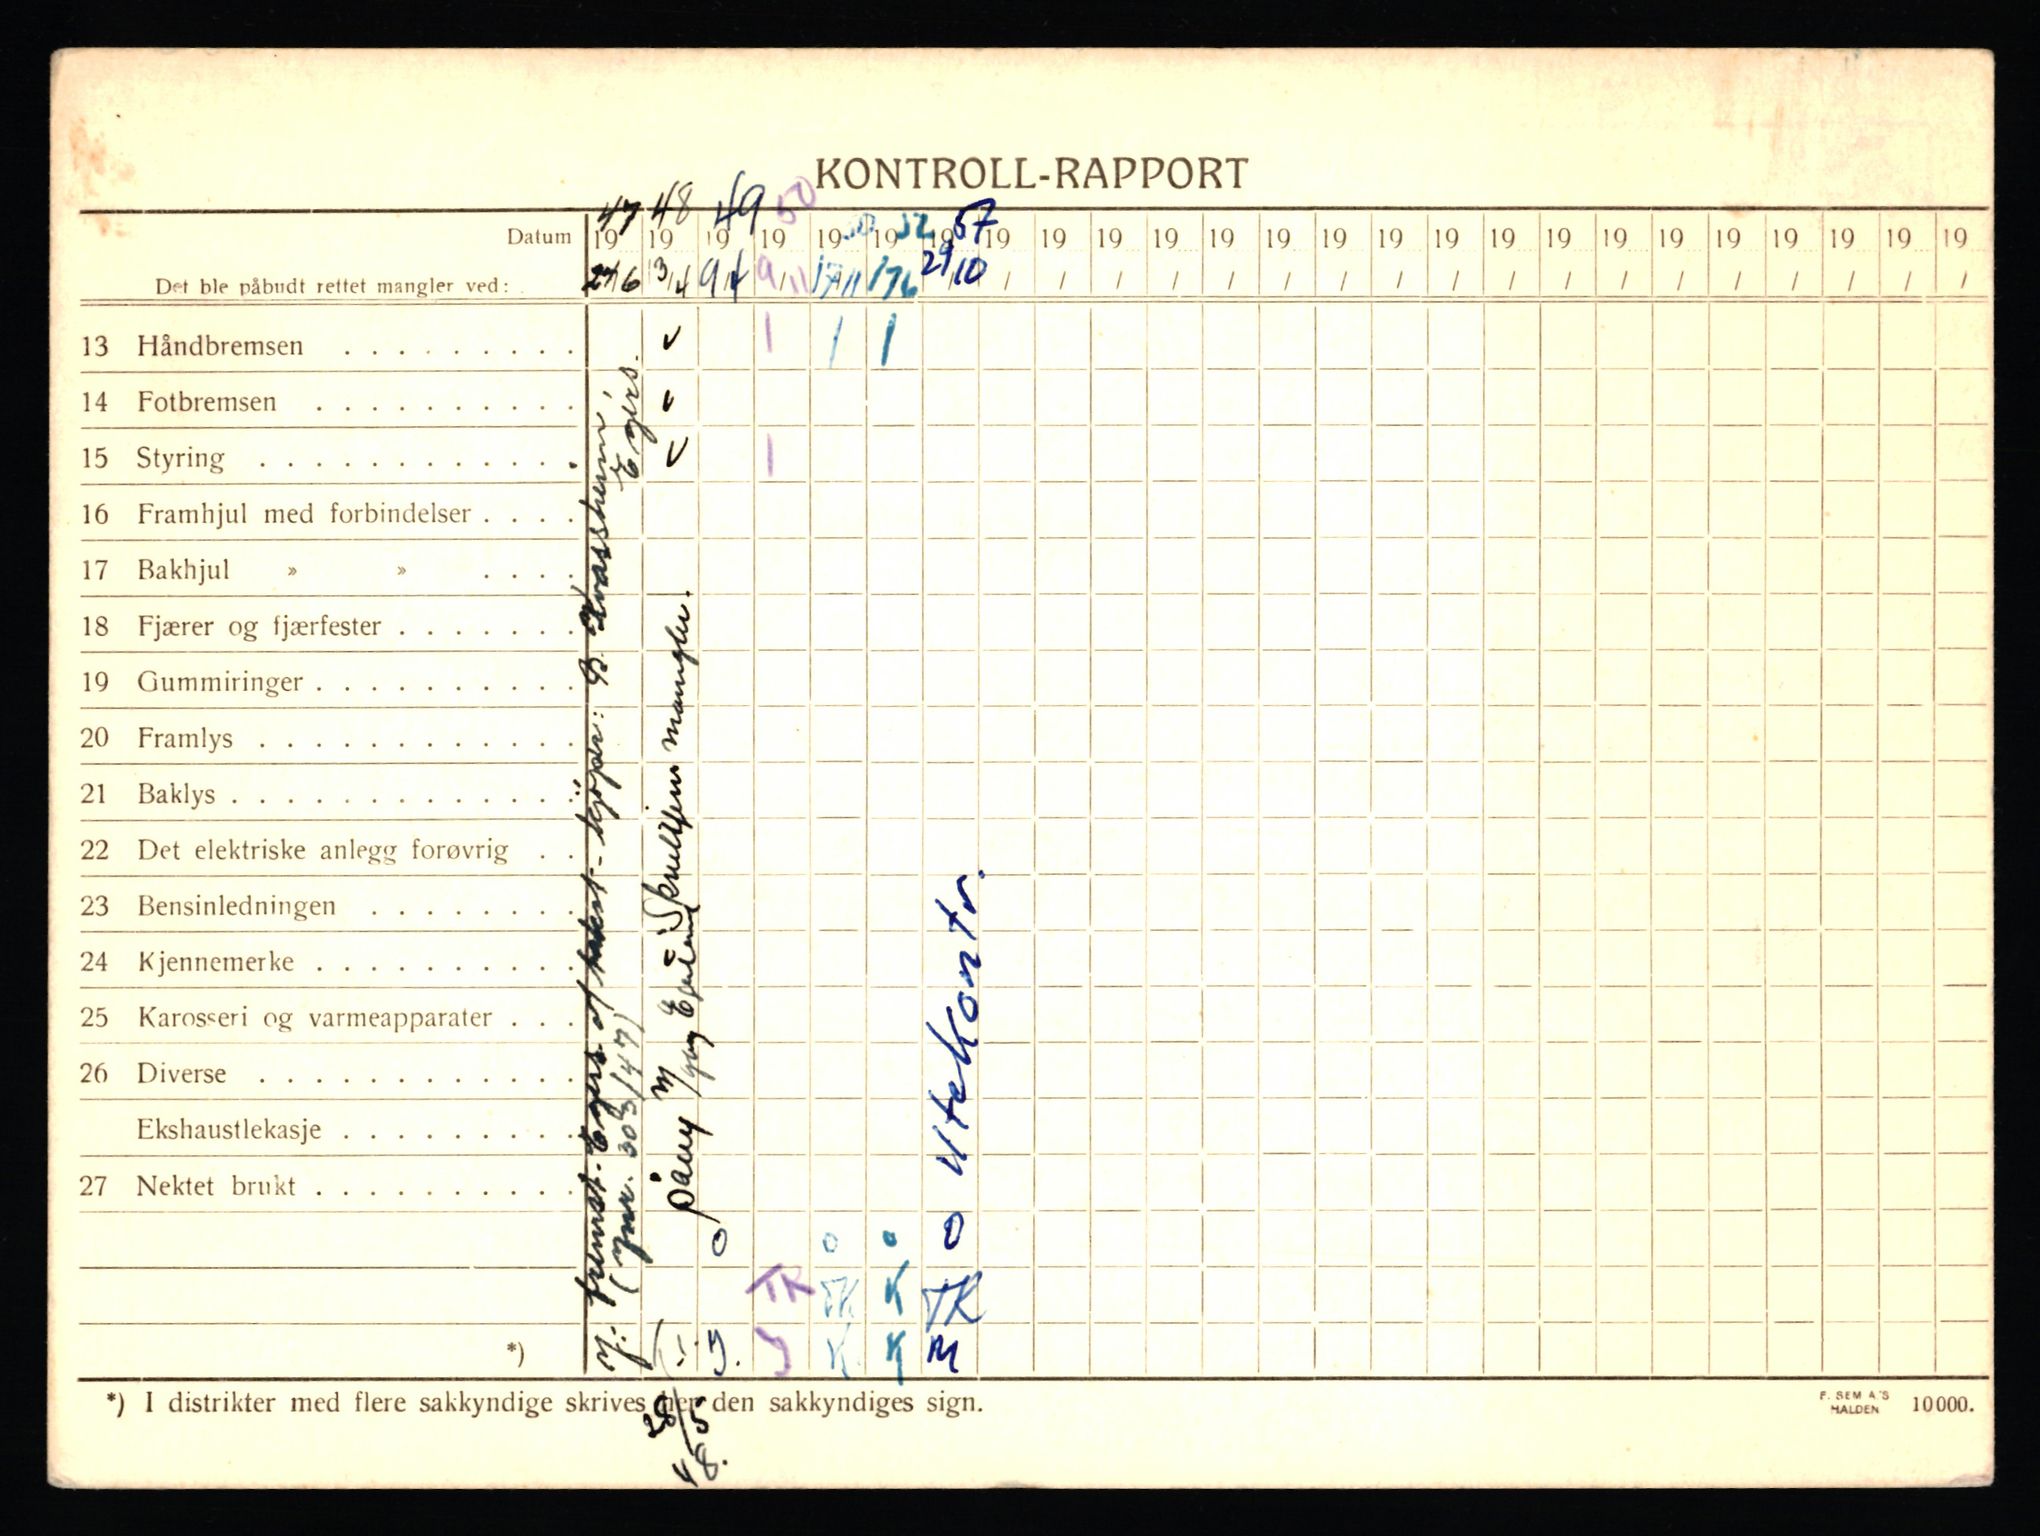 KONTROLL-RAPPORT
47 48 49 50 50 52 57
Datum 19 19 19 19 19 19 19 19 19 19 19 19 19 19 19 19 19 19 19 19 19 19 19 19 19
Det ble påbudt rettet mangler ved: 27/6 13/4 9/4 9/11 17/11 17/6 29/10 / / / / / / / / / / / / / / / / / /
13 Håndbremsen . . . . . . . . . v 1 1 1
14 Fotbremsen . . . . . . . . . . v
15 Styring . . . . . . . . . . . . v 1
16 Framhjul med forbindelser . . . .
17 Bakhjul » » . . . .
18 Fjærer og fjærfester . . . . . . .
19 Gummiringer . . . . . . . . . .
20 Framlys . . . . . . . . . . . .
21 Baklys . . . . . . . . . . . . .
22 Det elektriske anlegg forøvrig . .
23 Bensinledningen . . . . . . . .
24 Kjennemerke . . . . . . . . . .
25 Karosseri og varmeapparater . . .
26 Diverse . . . . . . . . . . . .
Ekshaustlekasje . . . . . . . . .
27 Nektet brukt . . . . . . . . . .
fremst. Egers. kjöper: B. Kvassheim, Egers.
(Jnr. 303/47)
påny
mangler.
Utekontr.
o o o o
TK TK K TK
*) J. J K K M
28/5
48.
*) I distrikter med flere sakkyndige skrives her den sakkyndiges sign.
F. SEM A'S
HALDEN
10000.